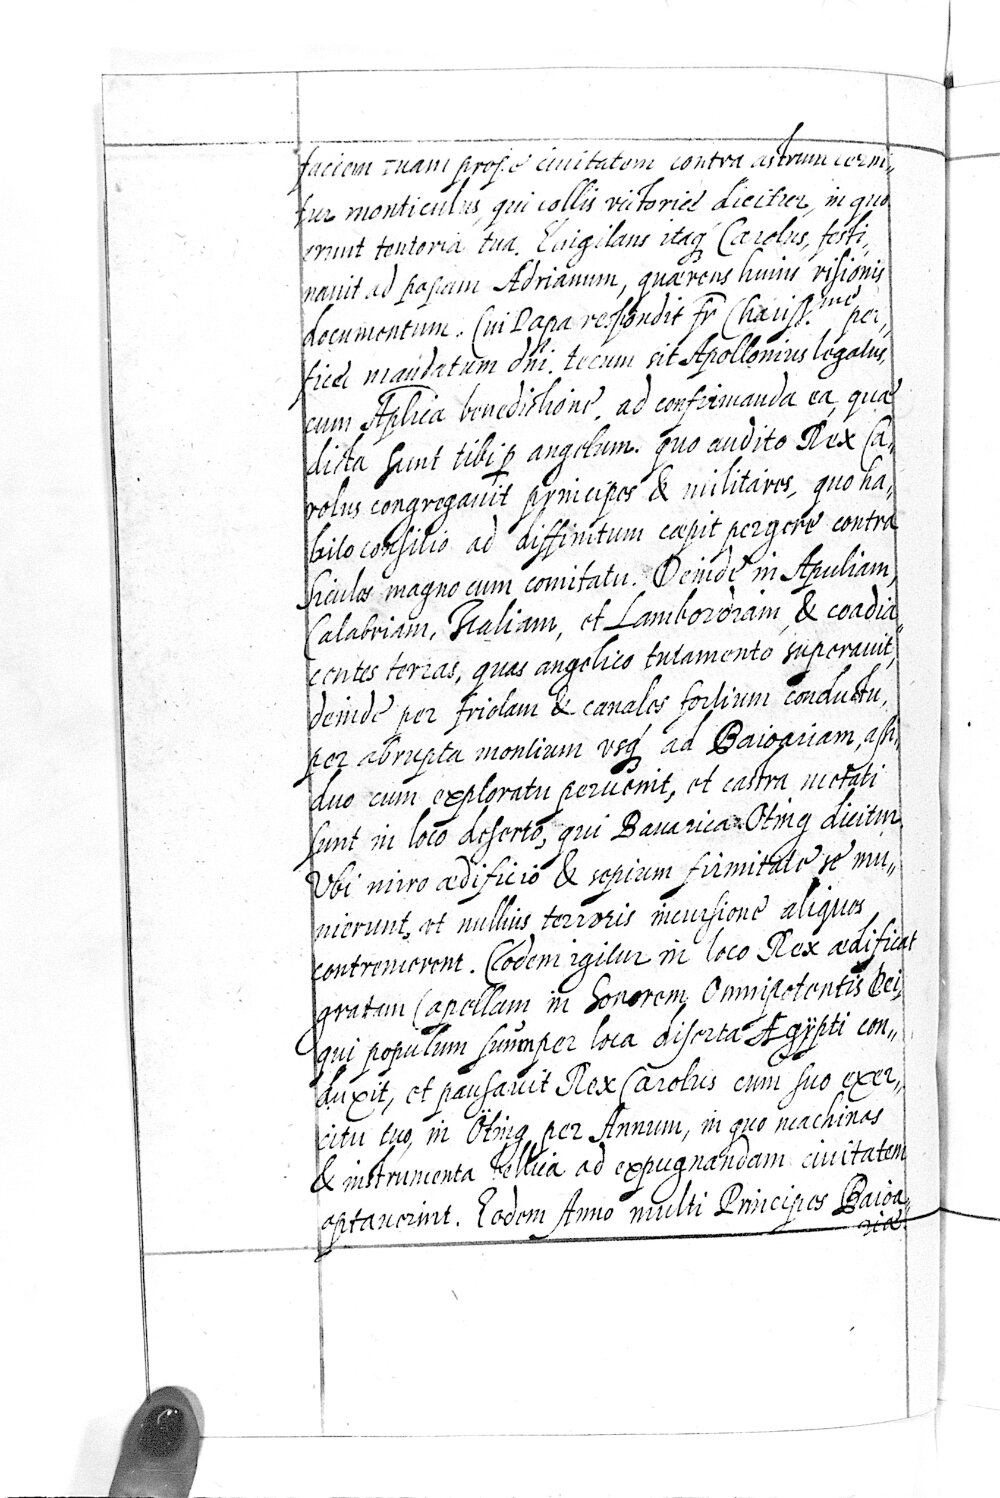 faciem tuam prope ciuitatem contra astrum cerni„
tur monticulus, qui collis victoriæ dicitur, in quo
erunt tentoria tua. Euigilans itaq́ Carolus, festi„
nauit ad papam Adrianum, quærens huius visionis
documentum. Cui Papa respondit fr̃ Chariss.me per„
fice mandatum dñi. tecum sit Apollonius legatus,
cum Aplica benedictione, ad confirmanda ea, quæ
dicta sunt tibi p angelum. quo audito Rex Ca„
rolus congregauit prnicipes & militares, quo ha„
bito consilio ad diffinitum cæpit pergere contra
siculos magno cum comitatu. Deinde in Apuliam,
Calabriam, Italiam, et Lambordiam, & coadia„
centes terras, quas angelico tutamento superauit,
deinde per friolam & canales fortium conductu,
per abrupta montium vsq́ ad Baioariam, assi„
duo cum exploratu peruenit, et castra metati
sunt in loco deserto, qui Bauarica Oting dicitur.
Vbi miro ædificio & sepium firmitate se mu„
nierunt, et nullius terroris incursione aliquos
contremerent. Eodem igitur in loco Rex ædificat
gratam Capellam in honorem Omnipotentis Dei,
qui populum suum per loca diserta Ægÿpti con„
duxit, et pausauit Rex Carolus cum suo exer„
citu tuo, in Öting per Annum, in quo machinas
& instrumenta bellica ad expugnandam ciuitatem
aptauerint. Eodem Anno multi Principes Baioa„
riæ